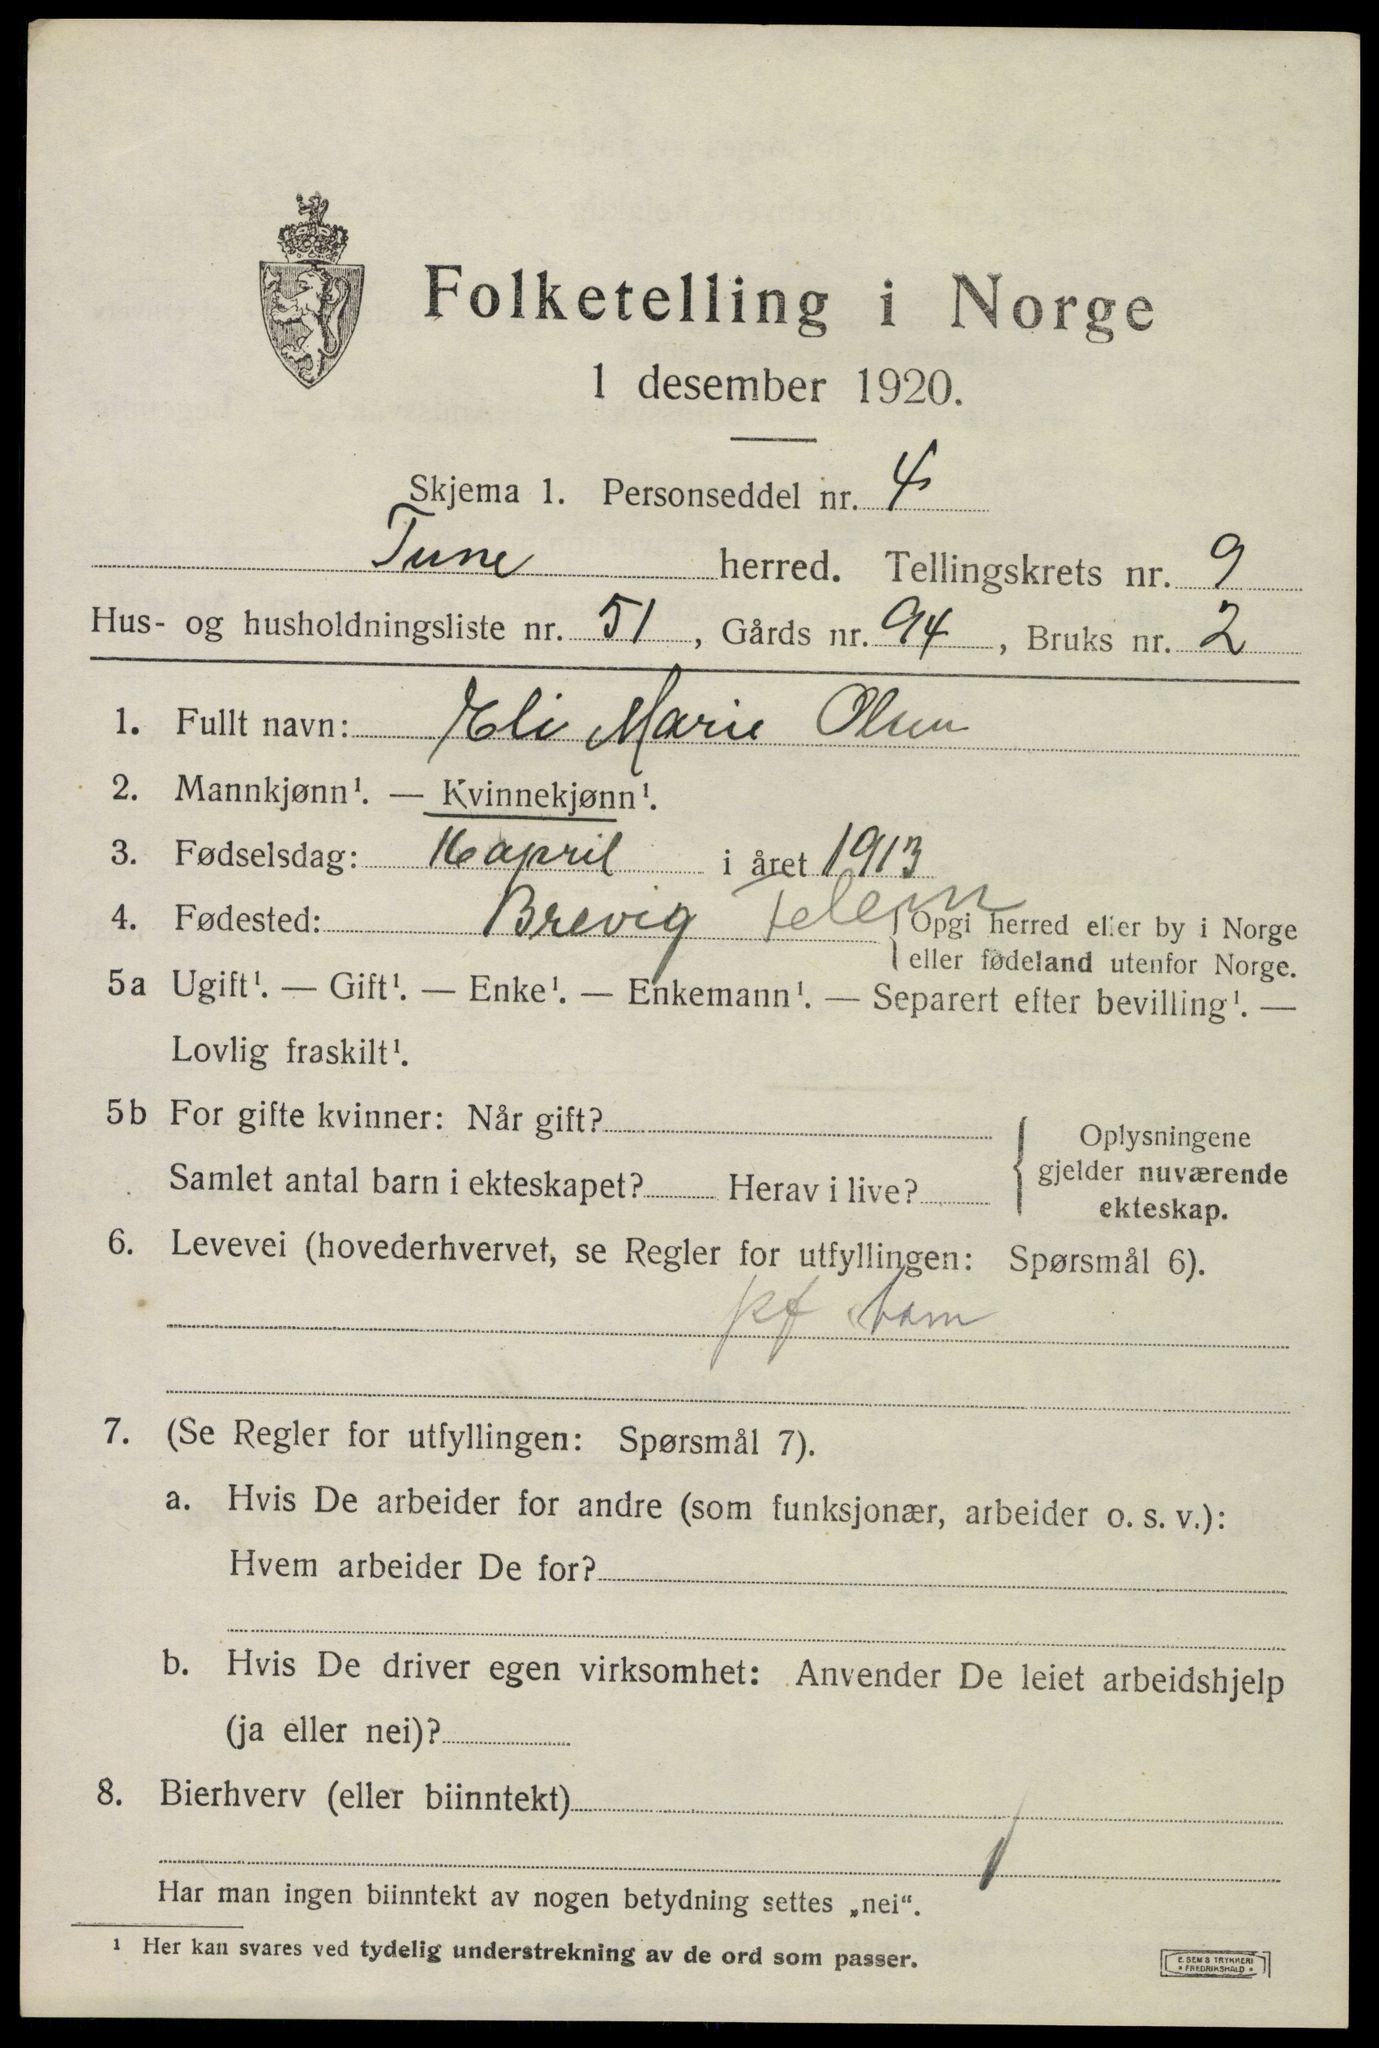 Folketelling i Norge
1 desember 1920.
Skjema 1. Personseddel nr. 4
Tune herred. Tellingskrets nr. 9
Hus- og husholdningsliste nr. 51, Gårds nr. 94, Bruks nr. 2
1. Fullt navn: Eli Marie Olsen
2. Mannkjønn¹. — Kvinnekjønn¹.
3. Fødselsdag: 16 april i året 1913
4. Fødested: Brevig Telem {Opgi herred eller by i Norge
eller fødeland utenfor Norge.
5a Ugift¹. — Gift¹. — Enke¹. — Enkemann¹. — Separert efter bevilling¹. —
Lovlig fraskilt¹.
5b For gifte kvinner: Når gift?
Samlet antal barn i ekteskapet? Herav i live?
Oplysningene
gjelder nuværende
ekteskap.
6. Levevei (hovederhvervet, se Regler for utfyllingen: Spørsmål 6).
pf barn
7. (Se Regler for utfyllingen: Spørsmål 7).
a. Hvis De arbeider for andre (som funksjonær, arbeider o. s. v.):
Hvem arbeider De for?
b. Hvis De driver egen virksomhet: Anvender De leiet arbeidshjelp
(ja eller nei)?
8. Bierhverv (eller biinntekt)
Har man ingen biinntekt av nogen betydning settes „nei“.
¹ Her kan svares ved tydelig understrekning av de ord som passer.
E. SEM'S TRYKKERI
• FREDRIKSHALD •